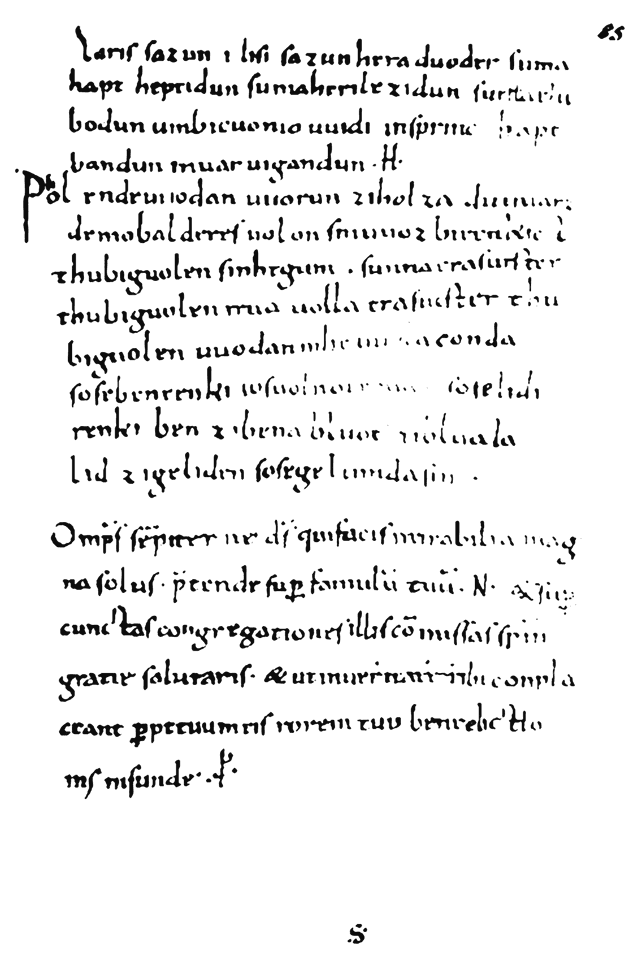 85
Eiris sazun idisi sazunhera duoder suma
hapt heptidun sumaherilezidun sumaclu
bodun umbicuonio uuidi insprinc hapt
bandun inuar uigandun .H.
Phol endeuuodan uuorun ziholza du uuart
demobalderes uolon sinuuoz birenkict
thubiguolen sinhtgunt . sunnaerasuister
thubiguolen friia uolla erasuister thu
biguolen uuodan conda
sosebenrenki soselidi
renki ben zibena bluot zibluoda
lid zigeliden sosegelimidasin .
Omps sepiter ne ds quifacis mirabilia mag
na solus . ptende sup famulu tuu . N . & sup
cunctas congregationes illis comissas spm
gratie salutaris . & utinueritate tibi conpla
ceant pptuumeis rorem tuae benedictio
nis infunde .
S